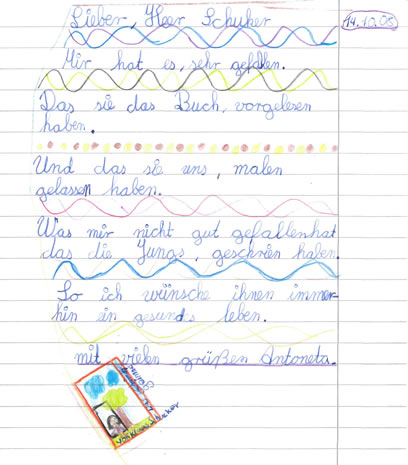 Lieber, Herr Schuker
14.10.08
Mir hat es, sehr gefallen.
Das sie das Buch, vorgelesen
haben.
Und das sie uns, malen
gelassen haben.
Was mir nicht gut gefallenhat
das die Jungs, geschrien haben.
So ich wünsche ihnen immer-
hin ein gesundes leben.
mit vielen grüßen Antoneta.